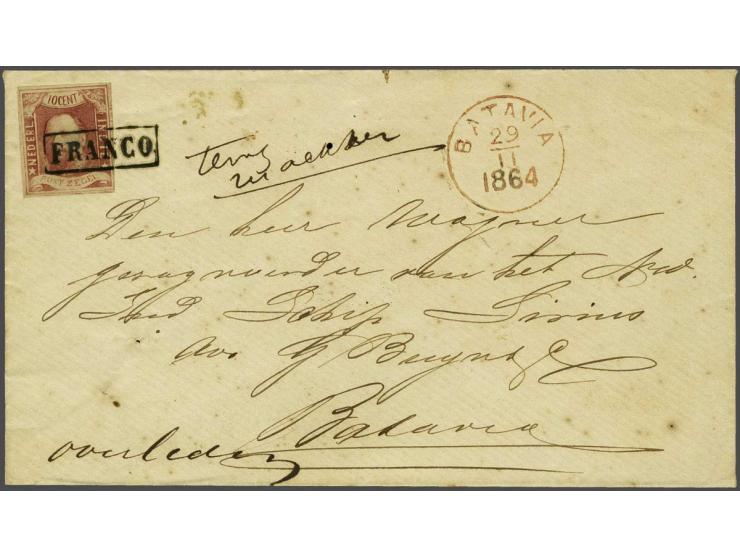 10 CENT
NEDERL. INDIE
POST ZEGEL
FRANCO
terug
BATAVIA
29
11
1864
Den heer Wagner
gezagvoerder van het Ned.
Ind Schip Sirius
Batavia
overleden